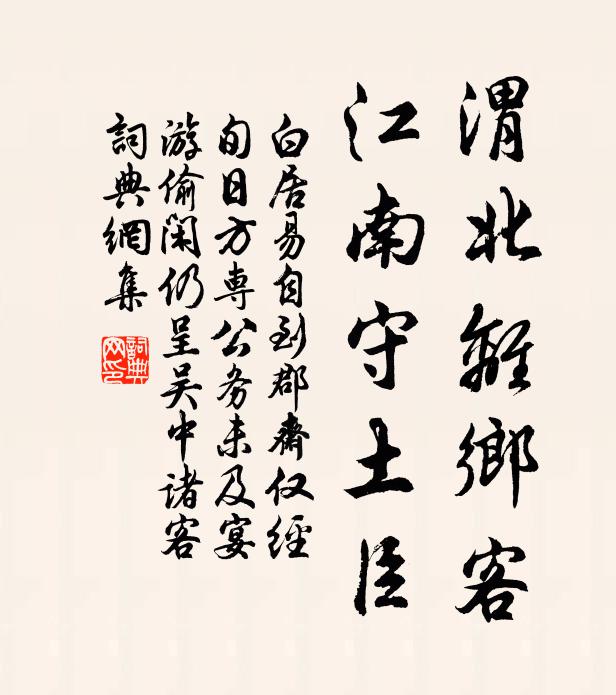 渭北離鄉客
江南守土臣
白居易自到郡齋仅經
旬日方専公务未及宴
游偷闲仍呈吴中诸客
詞典網集
詞典网印